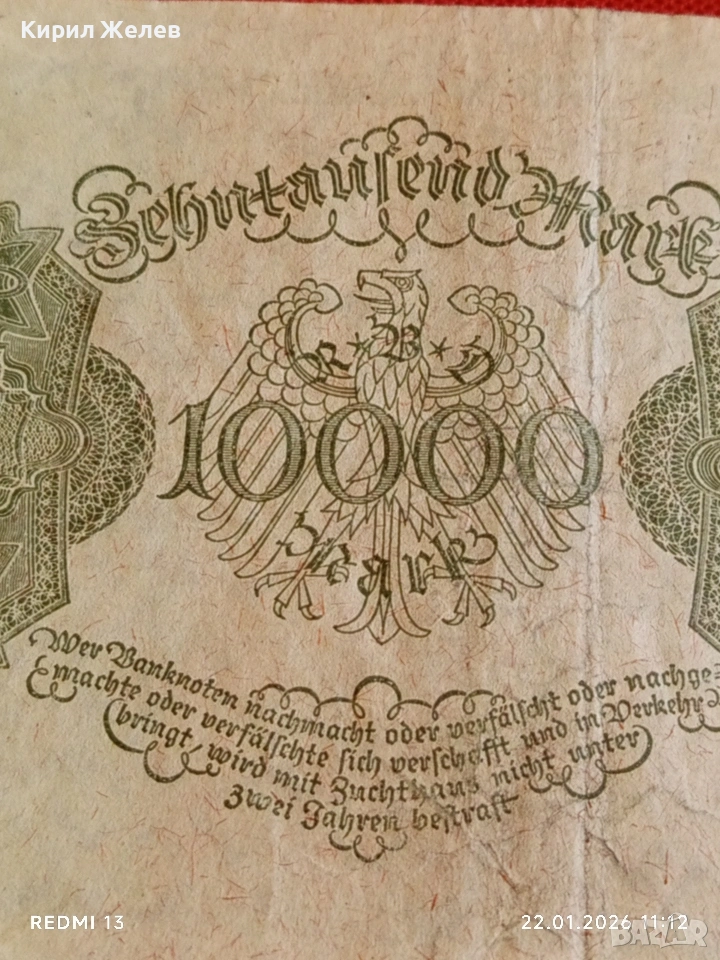 Кирил Желев
Zehntausend Mark
R*B*D
10000
Mark
Wer Banknoten nachmacht oder verfälscht oder nachge=
machte oder verfälschte sich verschafft und in Verkehr
bringt, wird mit Zuchthaus nicht unter
zwei Jahren bestraft
REDMI 13
22.01.2026 11:12
BAZAR